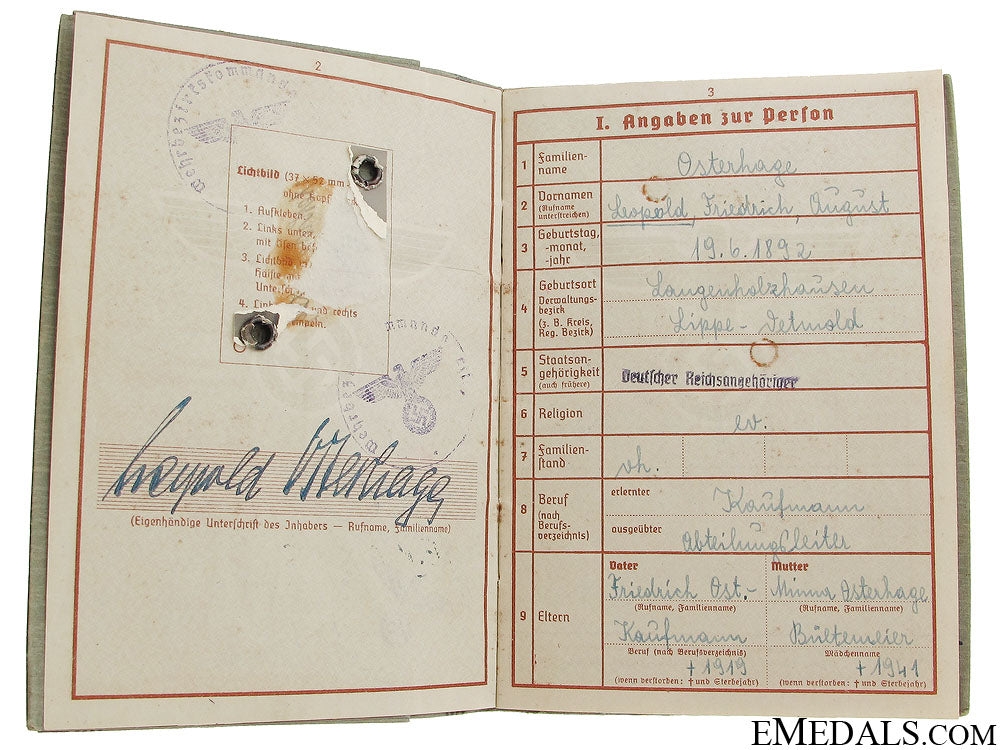 2
Wehrbezirkskommando
Lichtbild (37 × 52 mm
ohne Kopf
1. Aufkleben
2. Links unten,
mit Ösen bef
3. Lichtb
Hälfte
Unters
4. Lin und rechts
empeln.
Leopold Osterhage
(Eigenhändige Unterschrift des Inhabers — Rufname, Familienname)
3
I. Angaben zur Person
1 Familien-
name
Osterhage
2 Vornamen
(Rufname
unterstreichen)
Leopold, Friedrich, August
3 Geburtstag,
-monat,
-jahr
19.6.1892
4 Geburtsort
Verwaltungs-
bezirk
(z. B. Kreis,
Reg. Bezirk)
Langenholzhausen
Lippe-Detmold
5 Staatsan-
gehörigkeit
(auch frühere)
Deutscher Reichsangehöriger
6 Religion
ev.
7 Familien-
stand
vh.
8 Beruf
(nach
Berufs-
verzeichnis)
erlernter
Kaufmann
ausgeübter
Abteilungsleiter
9 Eltern
Vater Mutter
Friedrich Ost.- Minna Osterhage
(Rufname, Familienname) (Rufname, Familienname)
Kaufmann Bültemeier
Beruf (nach Berufsverzeichnis) Mädchenname
† 1919 † 1941
(wenn verstorben: † und Sterbejahr) (wenn verstorben: † und Sterbejahr)
EMEDALS.COM